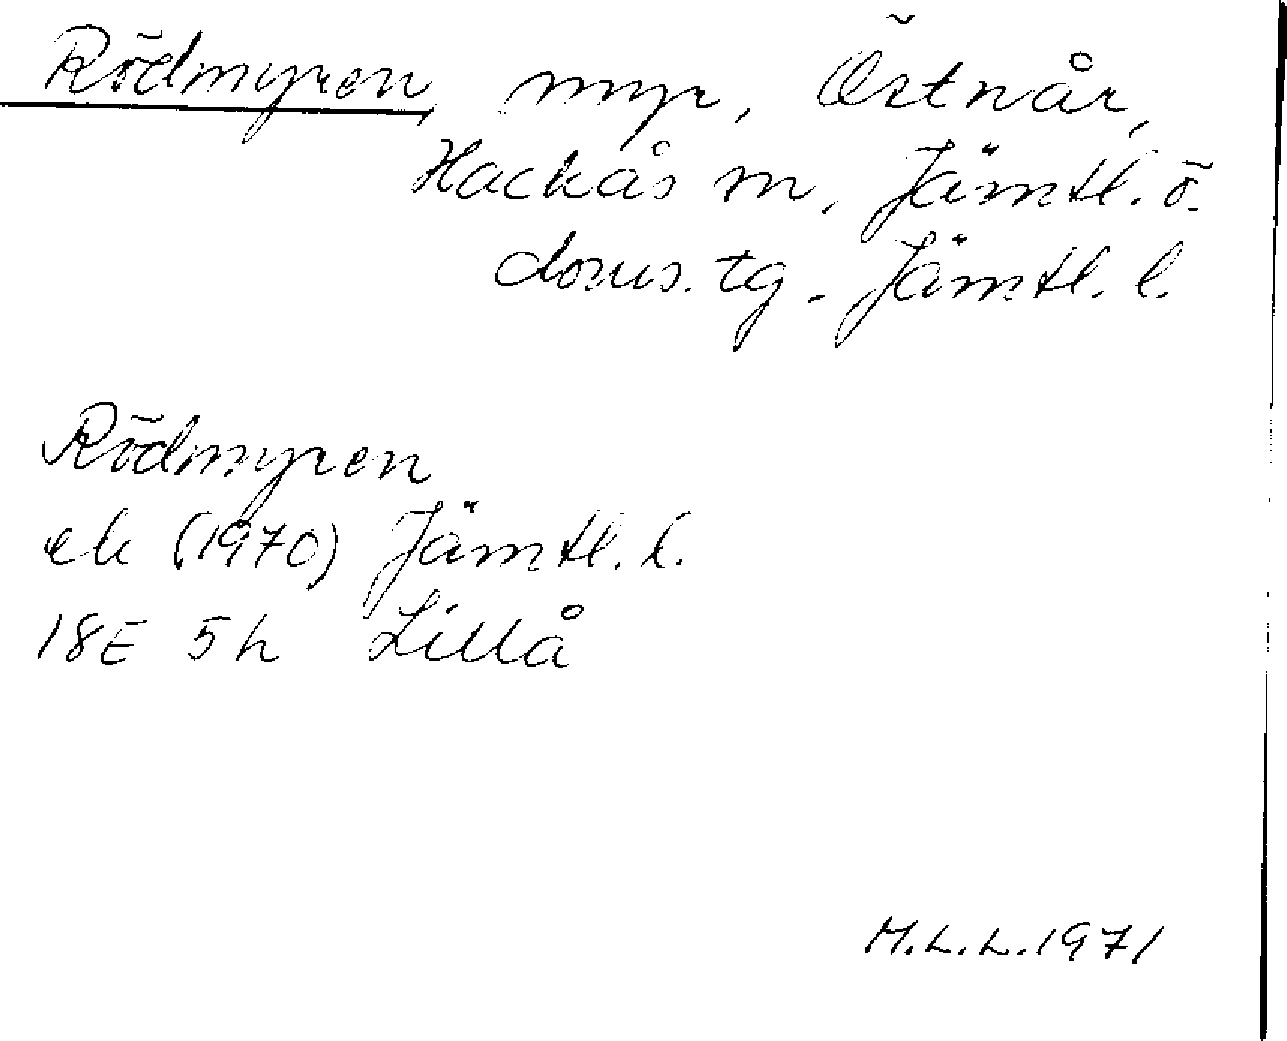 Rödmyren, myr, Östnår,
Hackås sn, Jämtl. ö.
doms. tg. Jämtl. l.
Rödmyren
ek (1970) Jämtl. l.
18E 5h Lillå
M.L.L. 1971